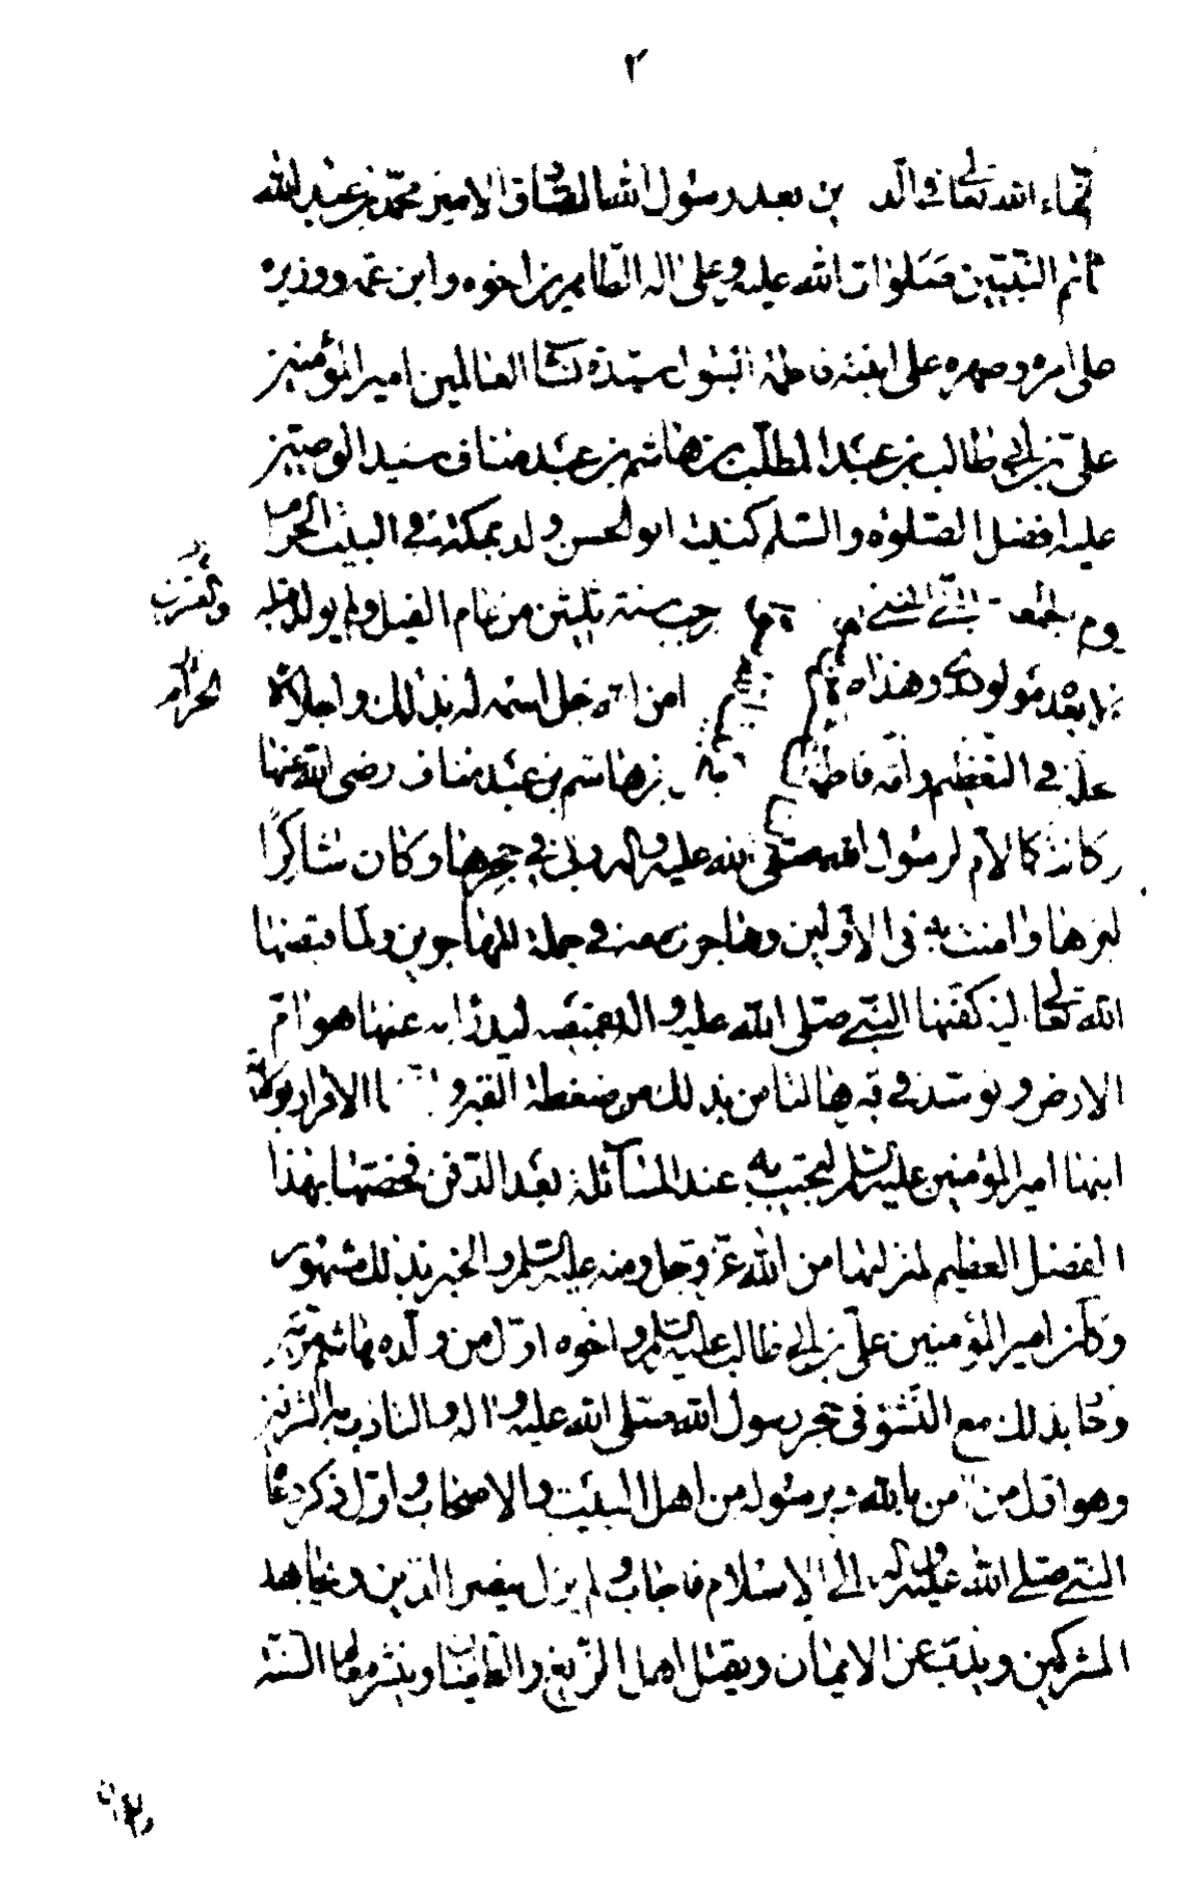 ٢
الله تعالى في الدين بعد رسول الله الصادق الامين محمد بن عبد الله
خاتم النبيين صلوات الله عليه وعلى اله الطاهرين اخوه وابن عمه ووزيره
على امره وصهره على ابنته فاطمة البتول سيدة نساء العالمين امير المؤمنين
على بن ابي طالب بن عبد المطلب بن هاشم بن عبد مناف سيد الوصيين
عليه افضل الصلوة والسلم كنيته ابو الحسن ولد بمكة في البيت الحرام
يوم الجمعة رجب سنة ثلثين من عام الفيل ولم يولد قبله
بعده مولود وهذا من الله جل اسمه له بذلك واجلالا
محله في التعظيم وامه فاطمة بن هاشم بن عبد مناف رضى الله عنها
كانت كالام لرسول الله صلى الله عليه واله ربى في حجرها وكان شاكرا
لبرها وامنت به في الاولين وهاجرت معه في جملة المهاجرين ولما قبضها
الله تعالى اليه كفنها النبي صلى الله عليه واله بقميصه ليدرا به عنها هوام
الارض وتوسد في قبرها لتامن بذلك من ضغطة القبر و الاقرار بولاية
ابنها امير المؤمنين عليه السلم لتجيب به عند المسائلة بعد الدفن فخصها بهذا
الفضل العظيم لمنزلتها من الله عز وجل ومنه عليه السلم والخبر بذلك مشهور
وكان امير المؤمنين على بن ابي طالب عليه السلم واخوه اول من ولده هاشم مرتين
وحاز بذلك مع النشو في حجر رسول الله صلى الله عليه واله والتادب به الشرفين
وهو اول من امن بالله وبرسوله من اهل البيت والاصحاب واول ذكر دعاه
النبي صلى الله عليه واله الى الاسلام فاجاب ولم يزل ينصر الدين ويجاهد
المشركين ويذب عن الايمان ويقتل اهل الزيغ والطغيان وينشر معالم السنة
الحرام